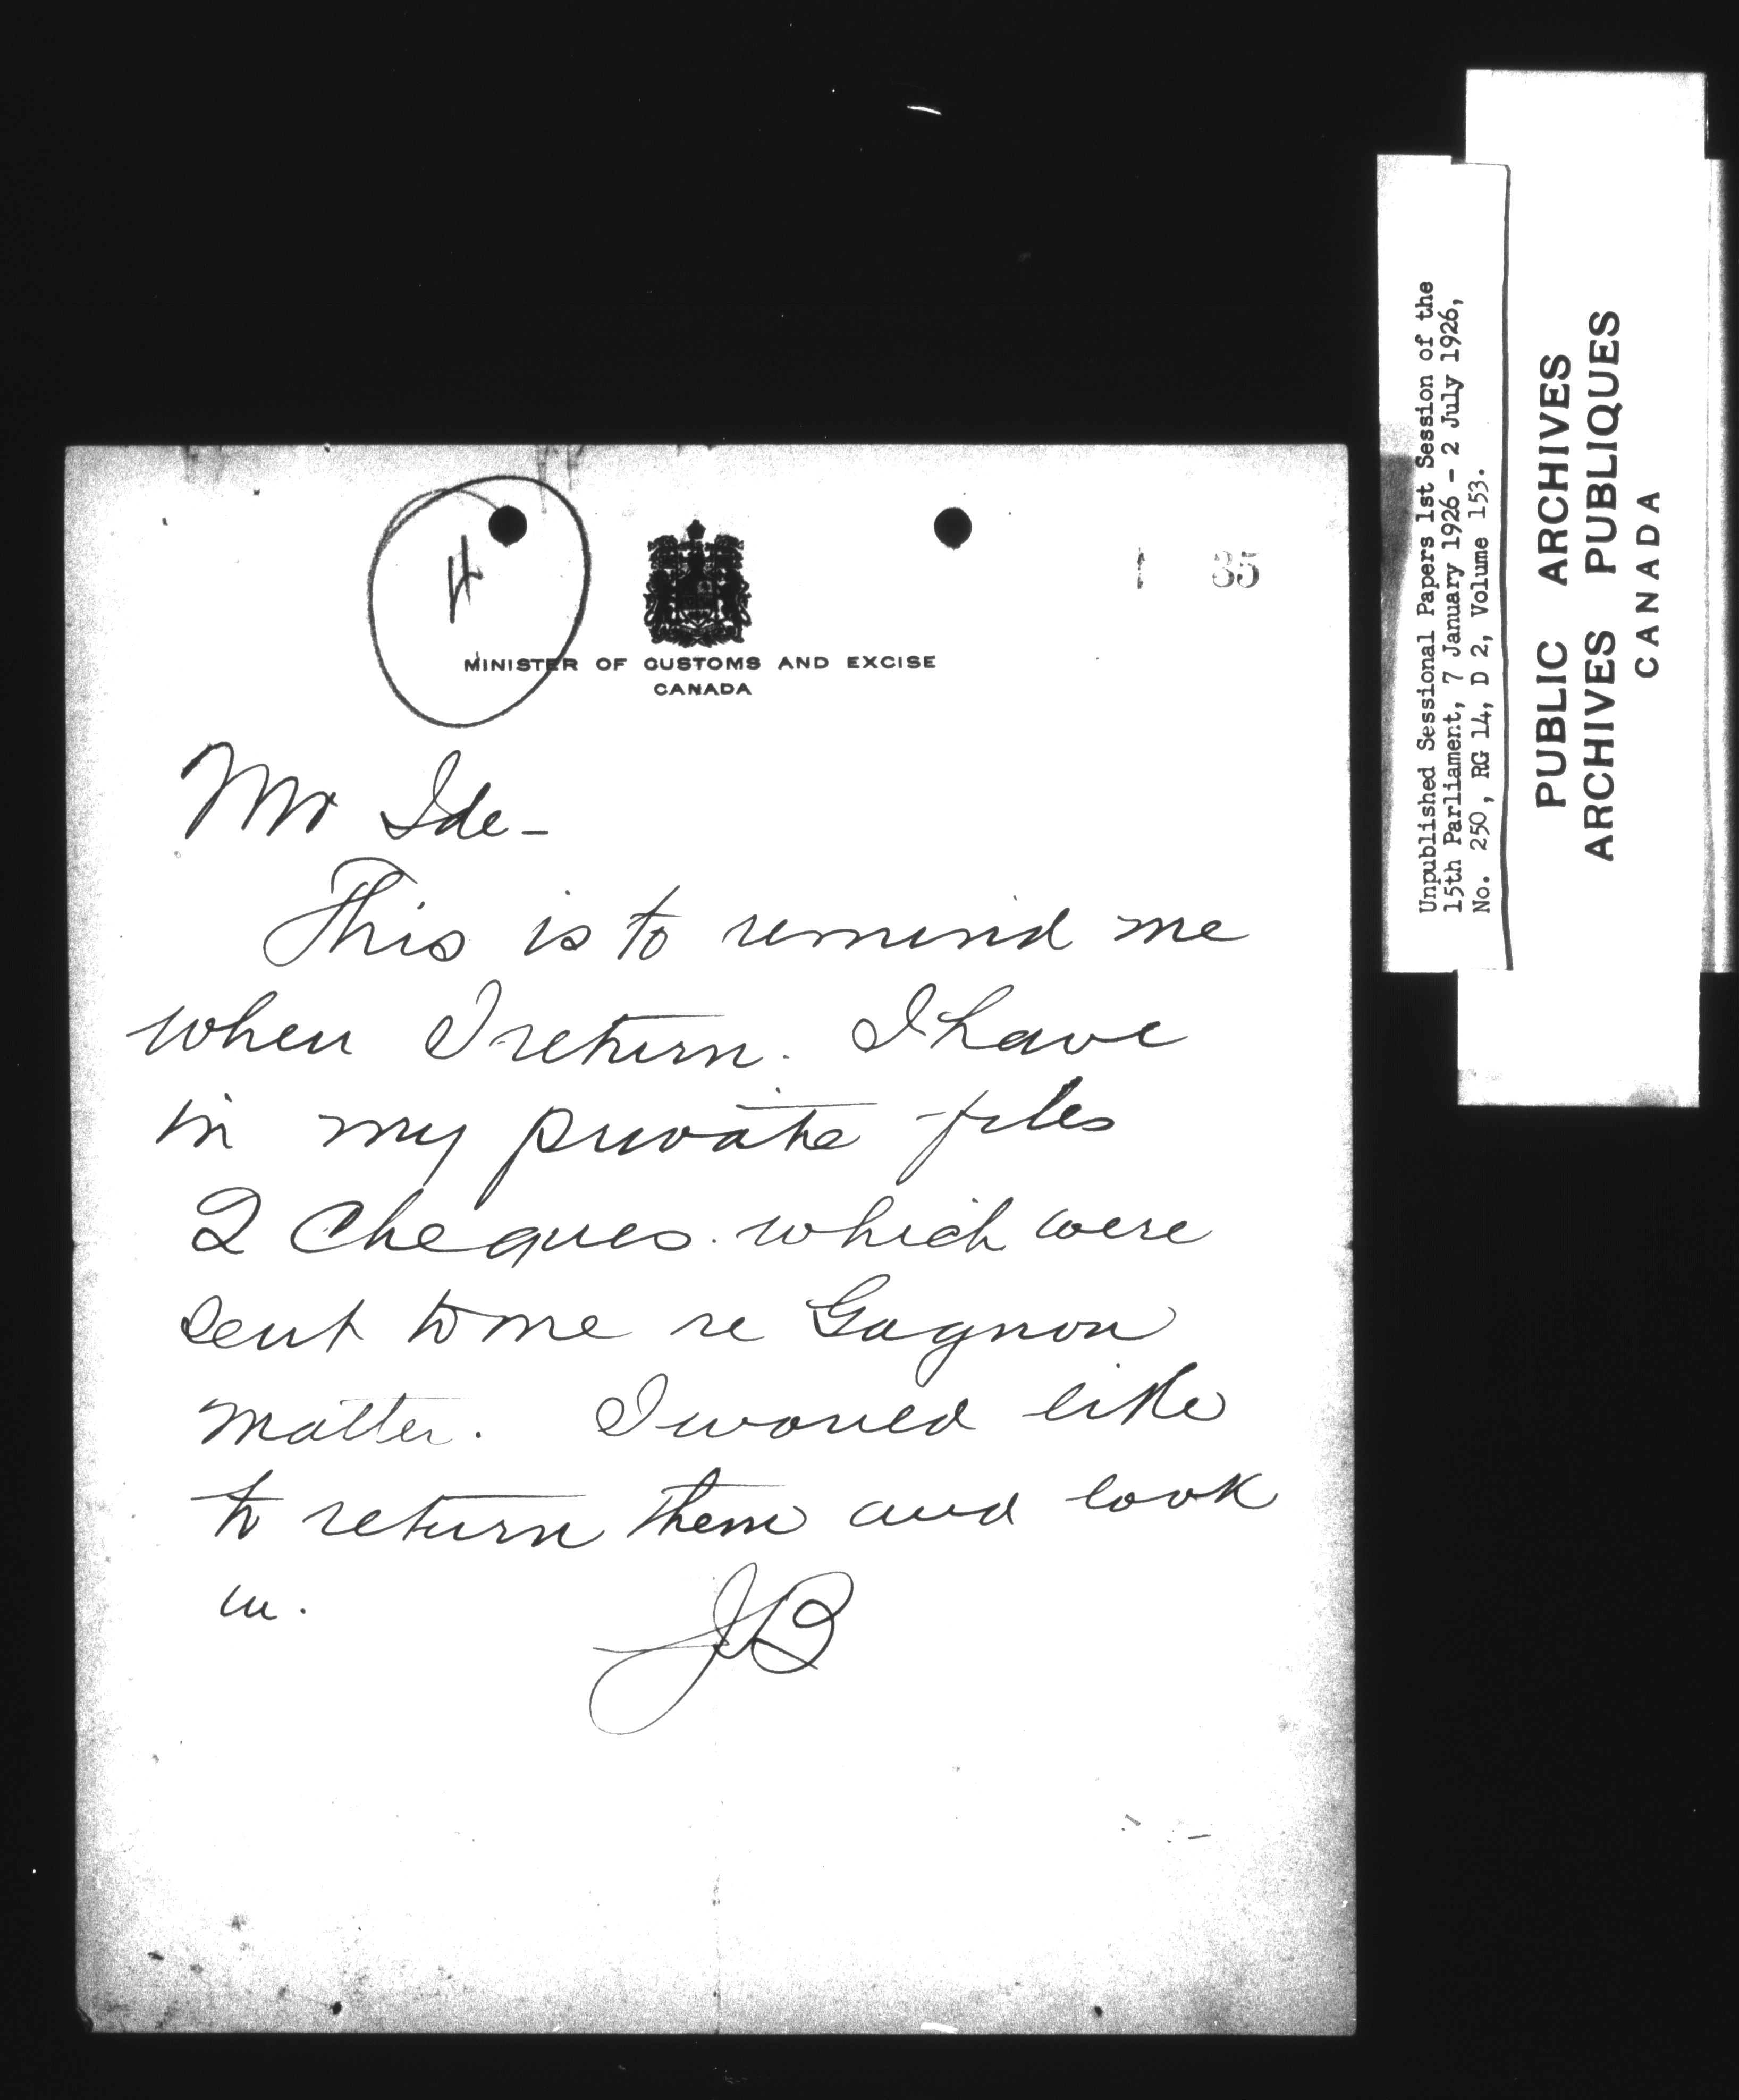 4
1 35
MINISTER OF CUSTOMS AND EXCISE
CANADA
Mr Ide-
This is to remind me
when I return. I have
in my private files
2 cheques which were
sent to me re Gagnon
matter. I would like
to return them and look
in.
JB
Unpublished Sessional Papers 1st Session of the
15th Parliament, 7 January 1926 - 2 July 1926,
No. 250, RG 14, D 2, Volume 153.
PUBLIC ARCHIVES
ARCHIVES PUBLIQUES
CANADA